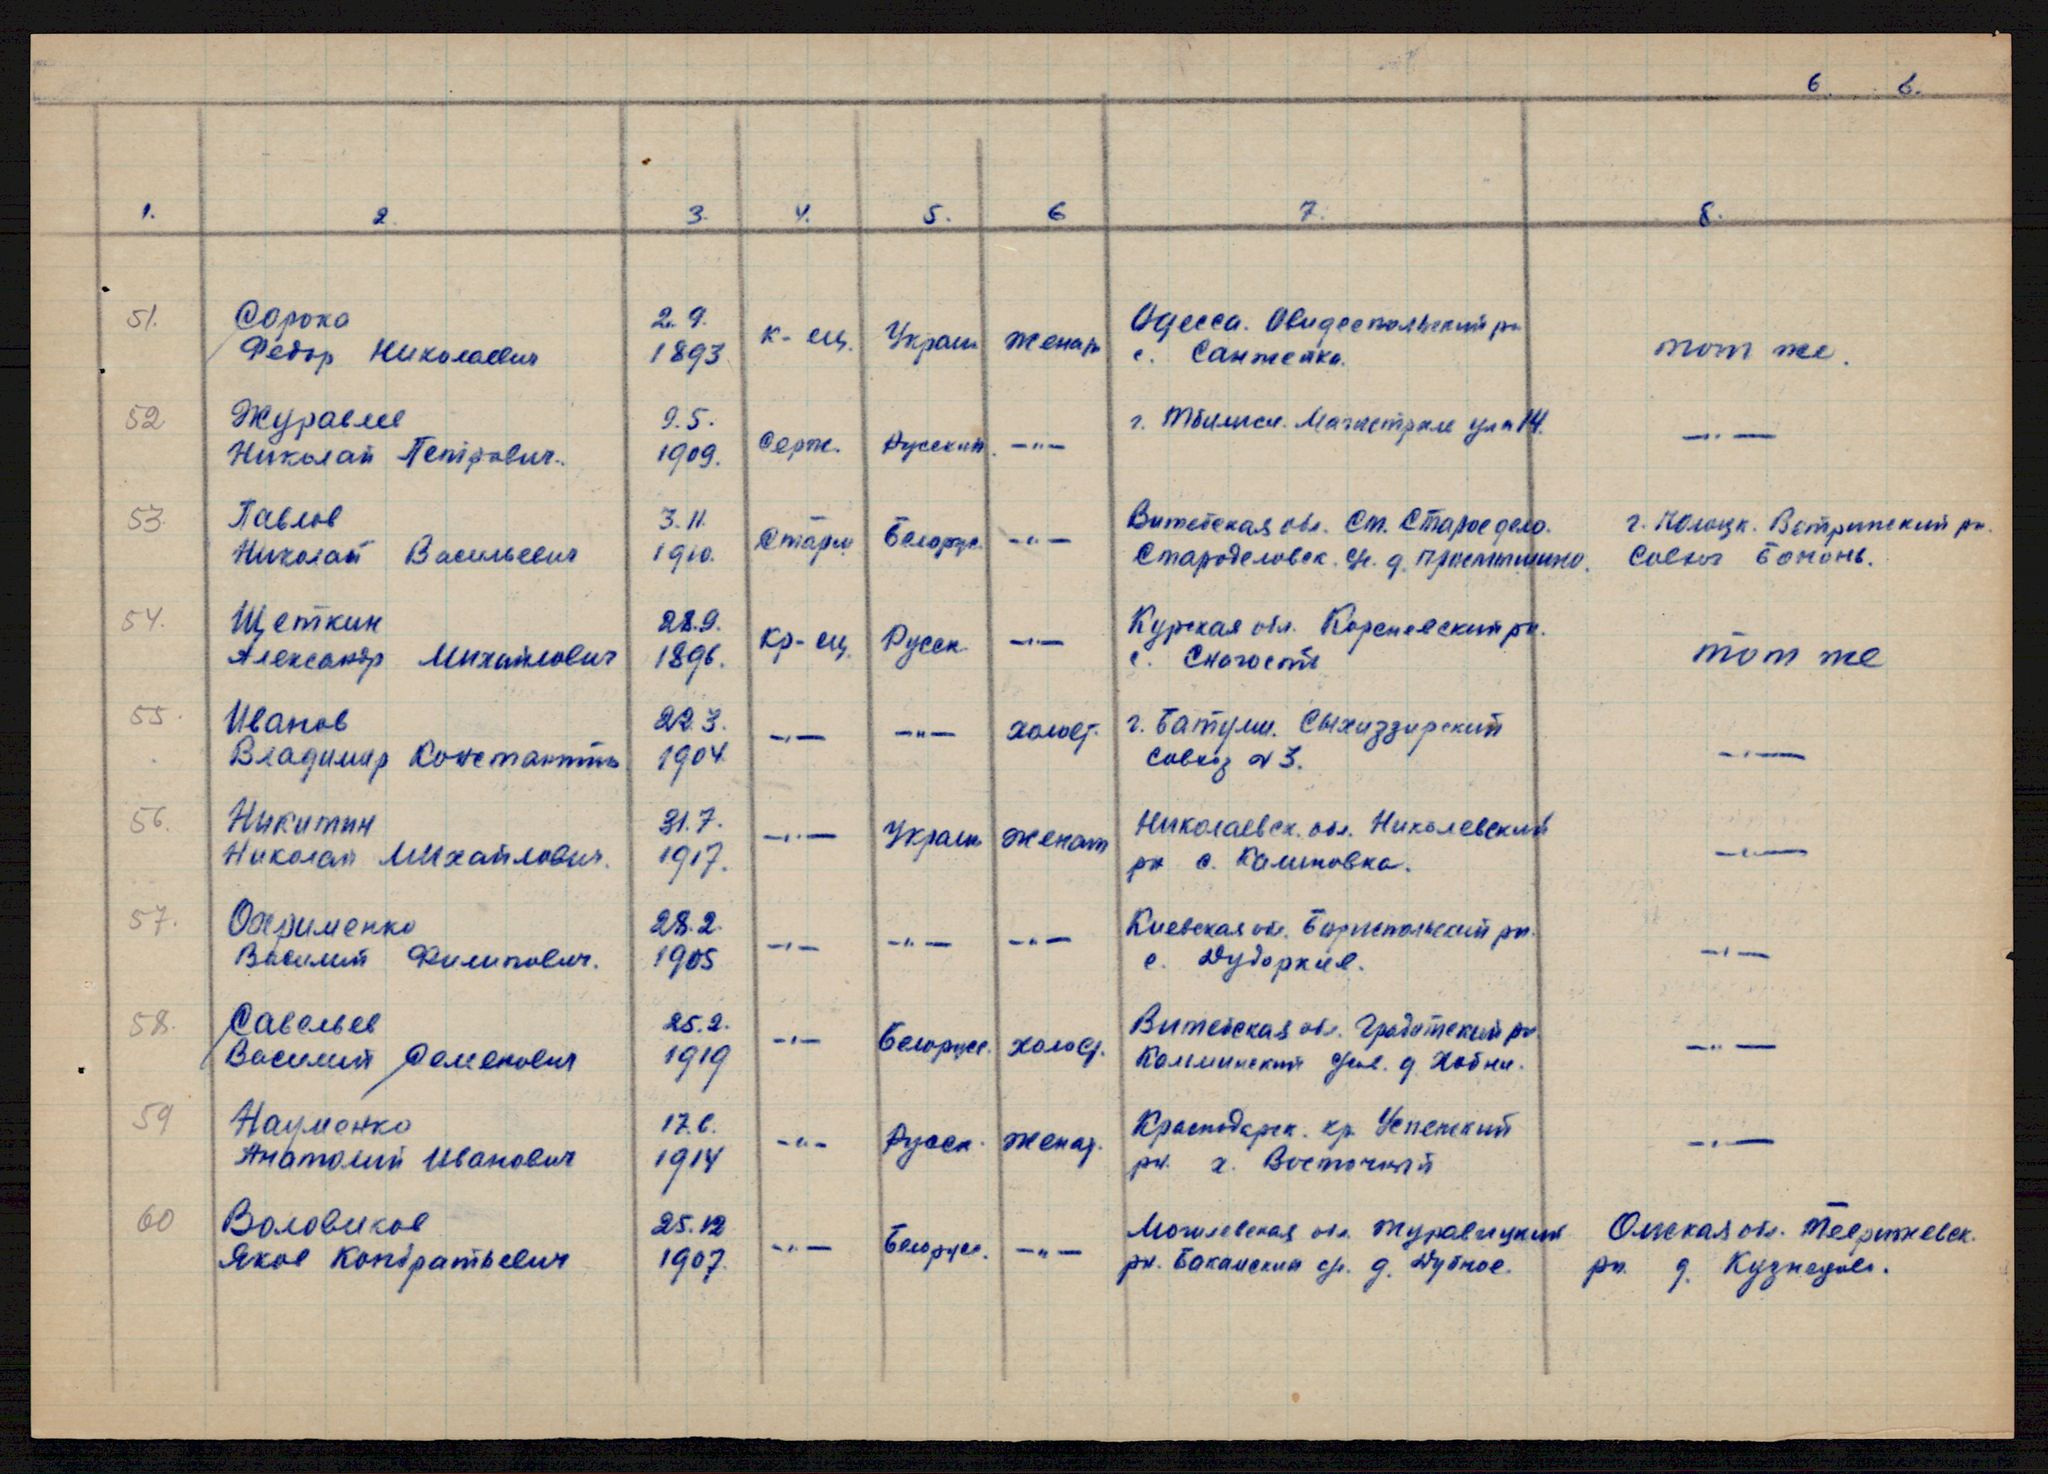 6. 6.
1. 2. 3. 4. 5. 6 7. 8.
51. Сорока 2. 9. Одесса. Овидеопольский рн
Федор Николаевич 1893 к-ец. Украин женат с. Санжейка. тот же.
52 Журавлев 9.5. г. Тбилиси. Магистрале ул 14.
Николай Петрович. 1909. Серж. Русский. -"- -"-
53. Павлов 3.11. Витебская обл. Ст. Староедело. г. Полоцк. Ветринский рн.
Николай Васильевич 1910. Старш Белорус -"- Староделовск. с/с. д. совхоз Банонь.
54. Щеткин 28.9. Курская обл. Кореневский рн.
Александр Михайлович 1896. Кр-ец Русск -"- с. Снагость тот же
55. Иванов 22.3. г. Батуми.
Владимир Константин 1904 -"- -"- холост. совхоз № 3. -"-
56. Никитин 31.7. Николаевск. обл. Николевский
Николай Михайлович. 1917. -"- Украин женат рн с. Калиновка. -"-
57. Охрименко 28.2. Киевская обл. Бориспольский рн.
Василий Филипович. 1905 -"- -"- -"- с. Дударкив. -"-
58. Савельев 25.2. Витебская обл. Градотский рн.
Василий Семенович 1919 -"- Белорусс. холост. д. Хобни. -"-
59 Науменко 17.6. Краснодарск. кр. Успенский
Анатолий Иванович 1914 -"- Русск. женат. рн. х. Восточный -"-
60 Воловиков 25.12 Могилевская обл. Журавицкий Омская обл. Тевризневск.
Яков Кондратьевич 1907. -"- Белорусс. -"- рн. с/с. д. Дубное. рн. д. Кузнецово.